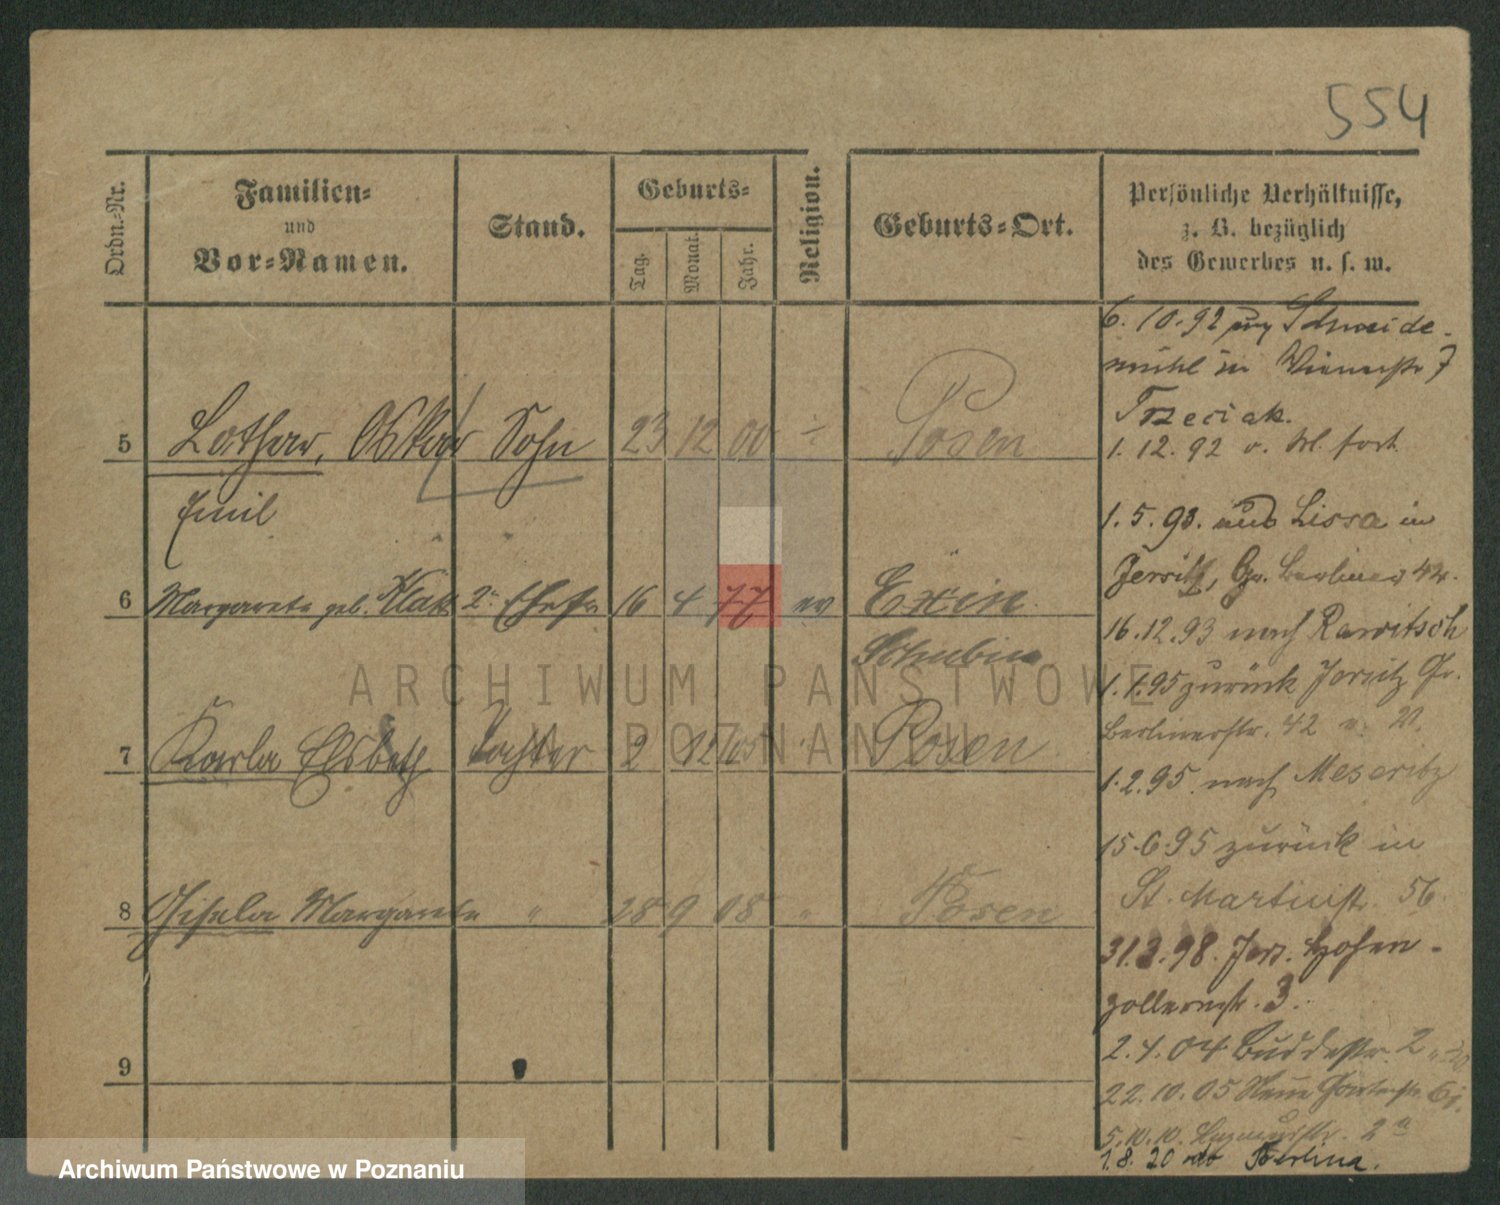 554
Ordn.-Nr.
Familien-
und
Vor-Namen.
Stand.
Geburts-
Tag.
Monat.
Jahr.
Religion.
Geburts-Ort.
Persönliche Verhältnisse,
z. B. bezüglich
des Gewerbes u. s. w.
5 Lothar, Oskar Sohn 23 12 00 Posen
Emil
6 Margarete geb. 2. Ehefr 16 4 77 ev Exin
Schubin
7 Karla Elsbeth Tochter 9 12 05 " Posen
8 Gisela Margarete " 28 9 08 " Posen
9
6. 10. 92 Schneide-
mühl in Wienerstr 7
Trzeciak.
1. 12. 92 v. fort
1. 5. 93. aus Lissa in
Jersitz, Gr. Berliner 42.
16. 12. 93 nach Rawitsch
1. 1. 95 zurück Jersitz Gr.
Berlinerstr. 42
1. 2. 95. nach Meseritz
15. 6. 95 zurück in
St. Martinstr. 56.
31. 3. 98. Jers. Hohen-
zollernstr. 3.
2. 4. 04 Buddestr. 2
22. 10. 05 Neue Gartenstr.
5. 10. 10.
1. 8. 20 Berlina.
ARCHIWUM PAŃSTWOWE
W POZNANIU
Archiwum Państwowe w Poznaniu